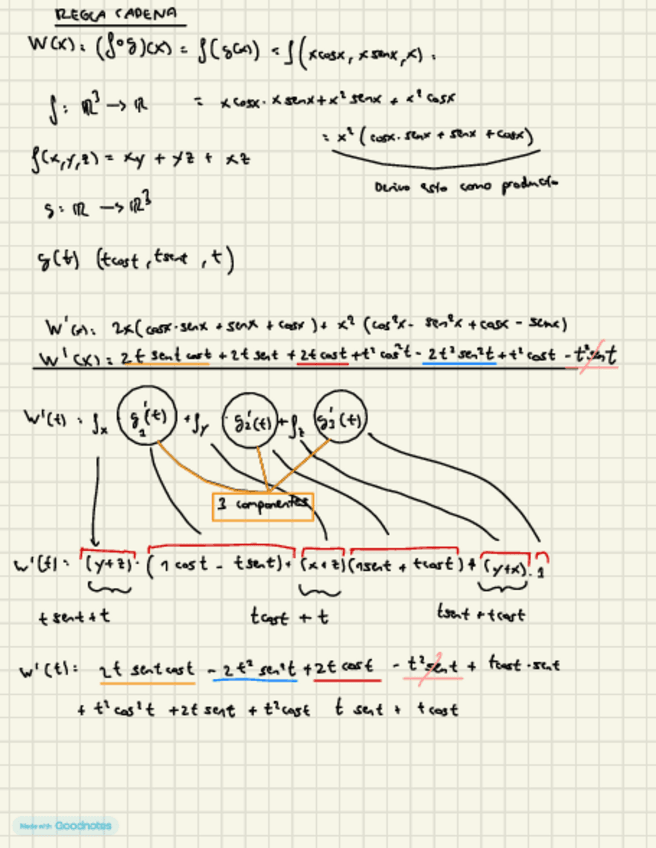 REGLA CADENA
W(x): (f∘g)(x) = f(g(x)) = f(xcosx, xsenx, x) =
f: ℝ³ → ℝ = xcosx · xsenx + x² senx + x² cosx
= x² (cosx·senx + senx + cosx)
f(x,y,z) = xy + yz + xz
Derivo esto como producto
g: ℝ → ℝ³
g(t) (tcost, tsent, t)
W'(x): 2x(cosx·senx + senx + cosx) + x² (cos²x - sen²x + cosx - senx)
W'(x): 2t sent cost + 2t sent + 2t cost + t² cos²t - 2t² sen²t + t² cost - t² sent
W'(t): fx g1'(t) + fy g2'(t) + fz g3'(t)
3 componentes
W'(t): (y+z)·(1 cost - tsent) + (x+z)(1sent + tcost) + (y+x).1
t sent + t tcost + t tsent + tcost
W'(t): 2t sent cost - 2t² sen²t + 2t cost - t² sent + tcost·sent
+ t² cos²t + 2t sent + t² cost t sent + t cost
Made with Goodnotes